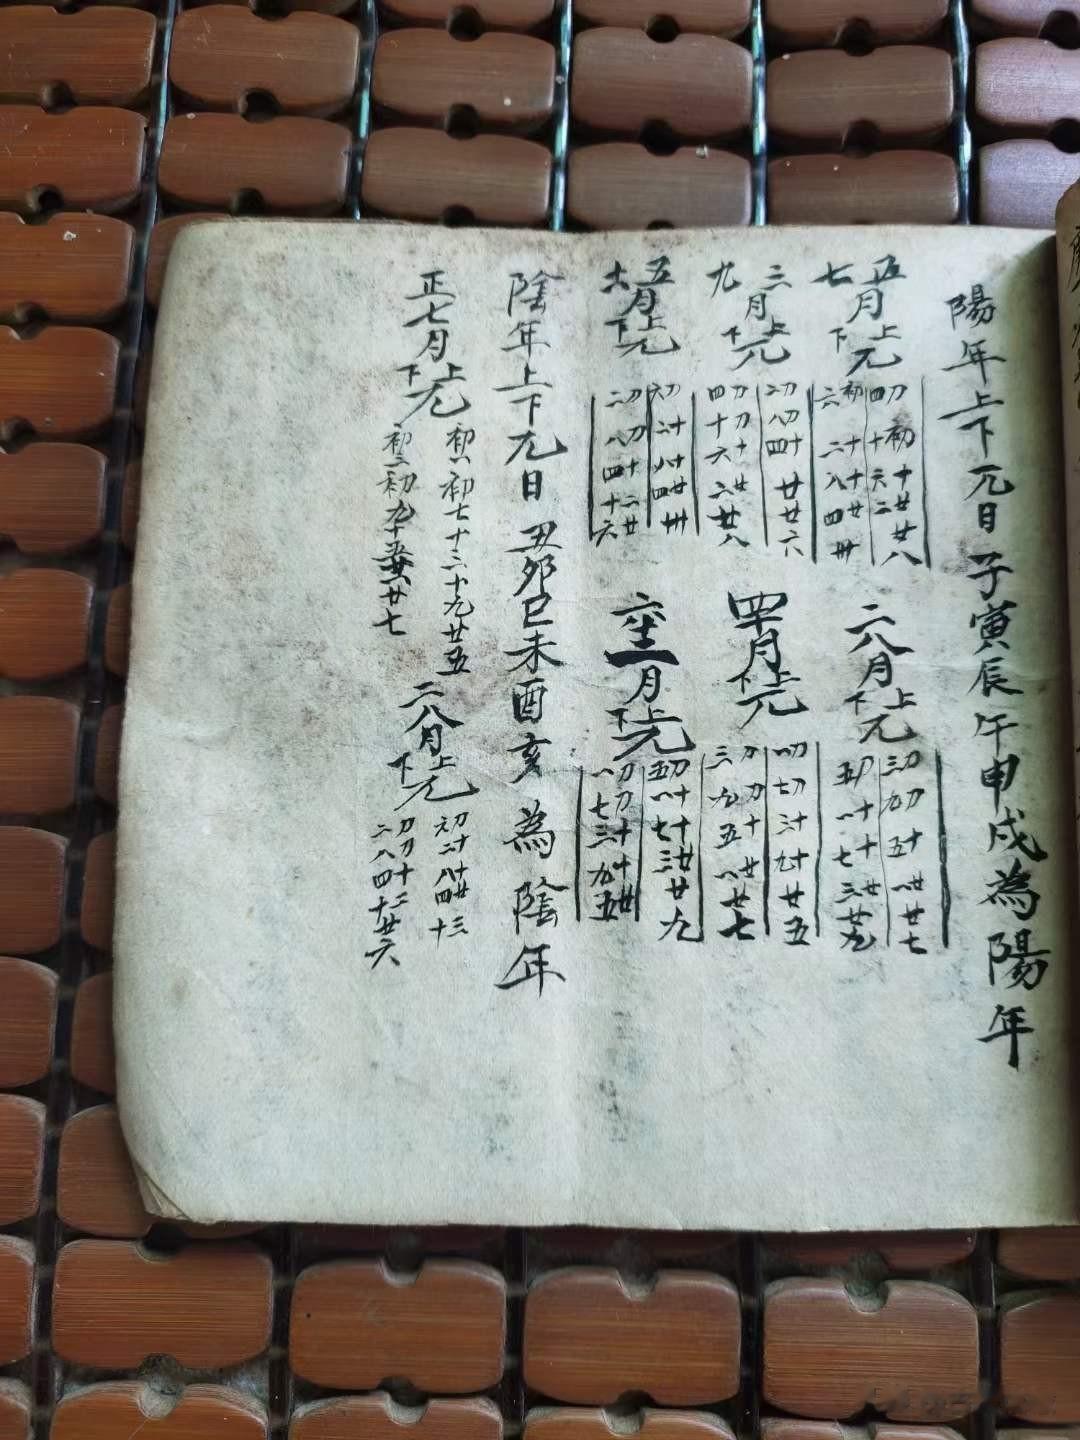 陽年上下元日子寅辰午申戌為陽年
正七月上下元
初四初十十六廿二廿八
初六十二十八廿四卅
二八月上下元
初三初九十五廿一廿七
初五十一十七廿三廿九
三九月上下元
初二初八十四廿廿六
初四初十十六廿二廿八
四十月上下元
初一初七十三十九廿五
初三初九十五廿一廿七
五十一月上下元
初六十二十八廿四卅
初二初八十四二十廿六
六十二月上下元
初五十一十七廿三廿九
初一初七十三十九廿五
陰年上下元日丑卯巳未酉亥為陰年
正七月上下元
初一初七十三十九廿五
初三初九十五廿一廿七
二八月上下元
初六十二十八廿四三十
初二初八十四二十廿六